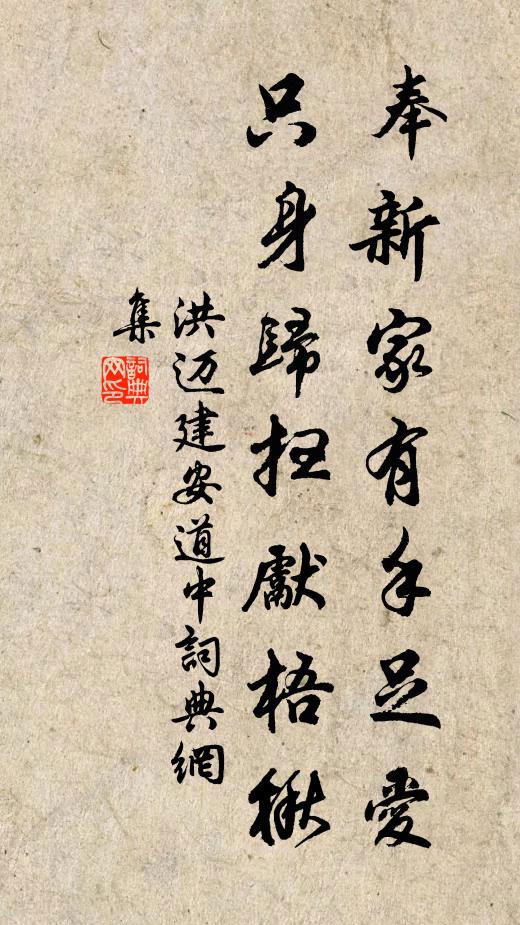 奉新家有手足愛
只身歸扫獻梧楸
洪迈建安道中詞典網
集
詞典网印